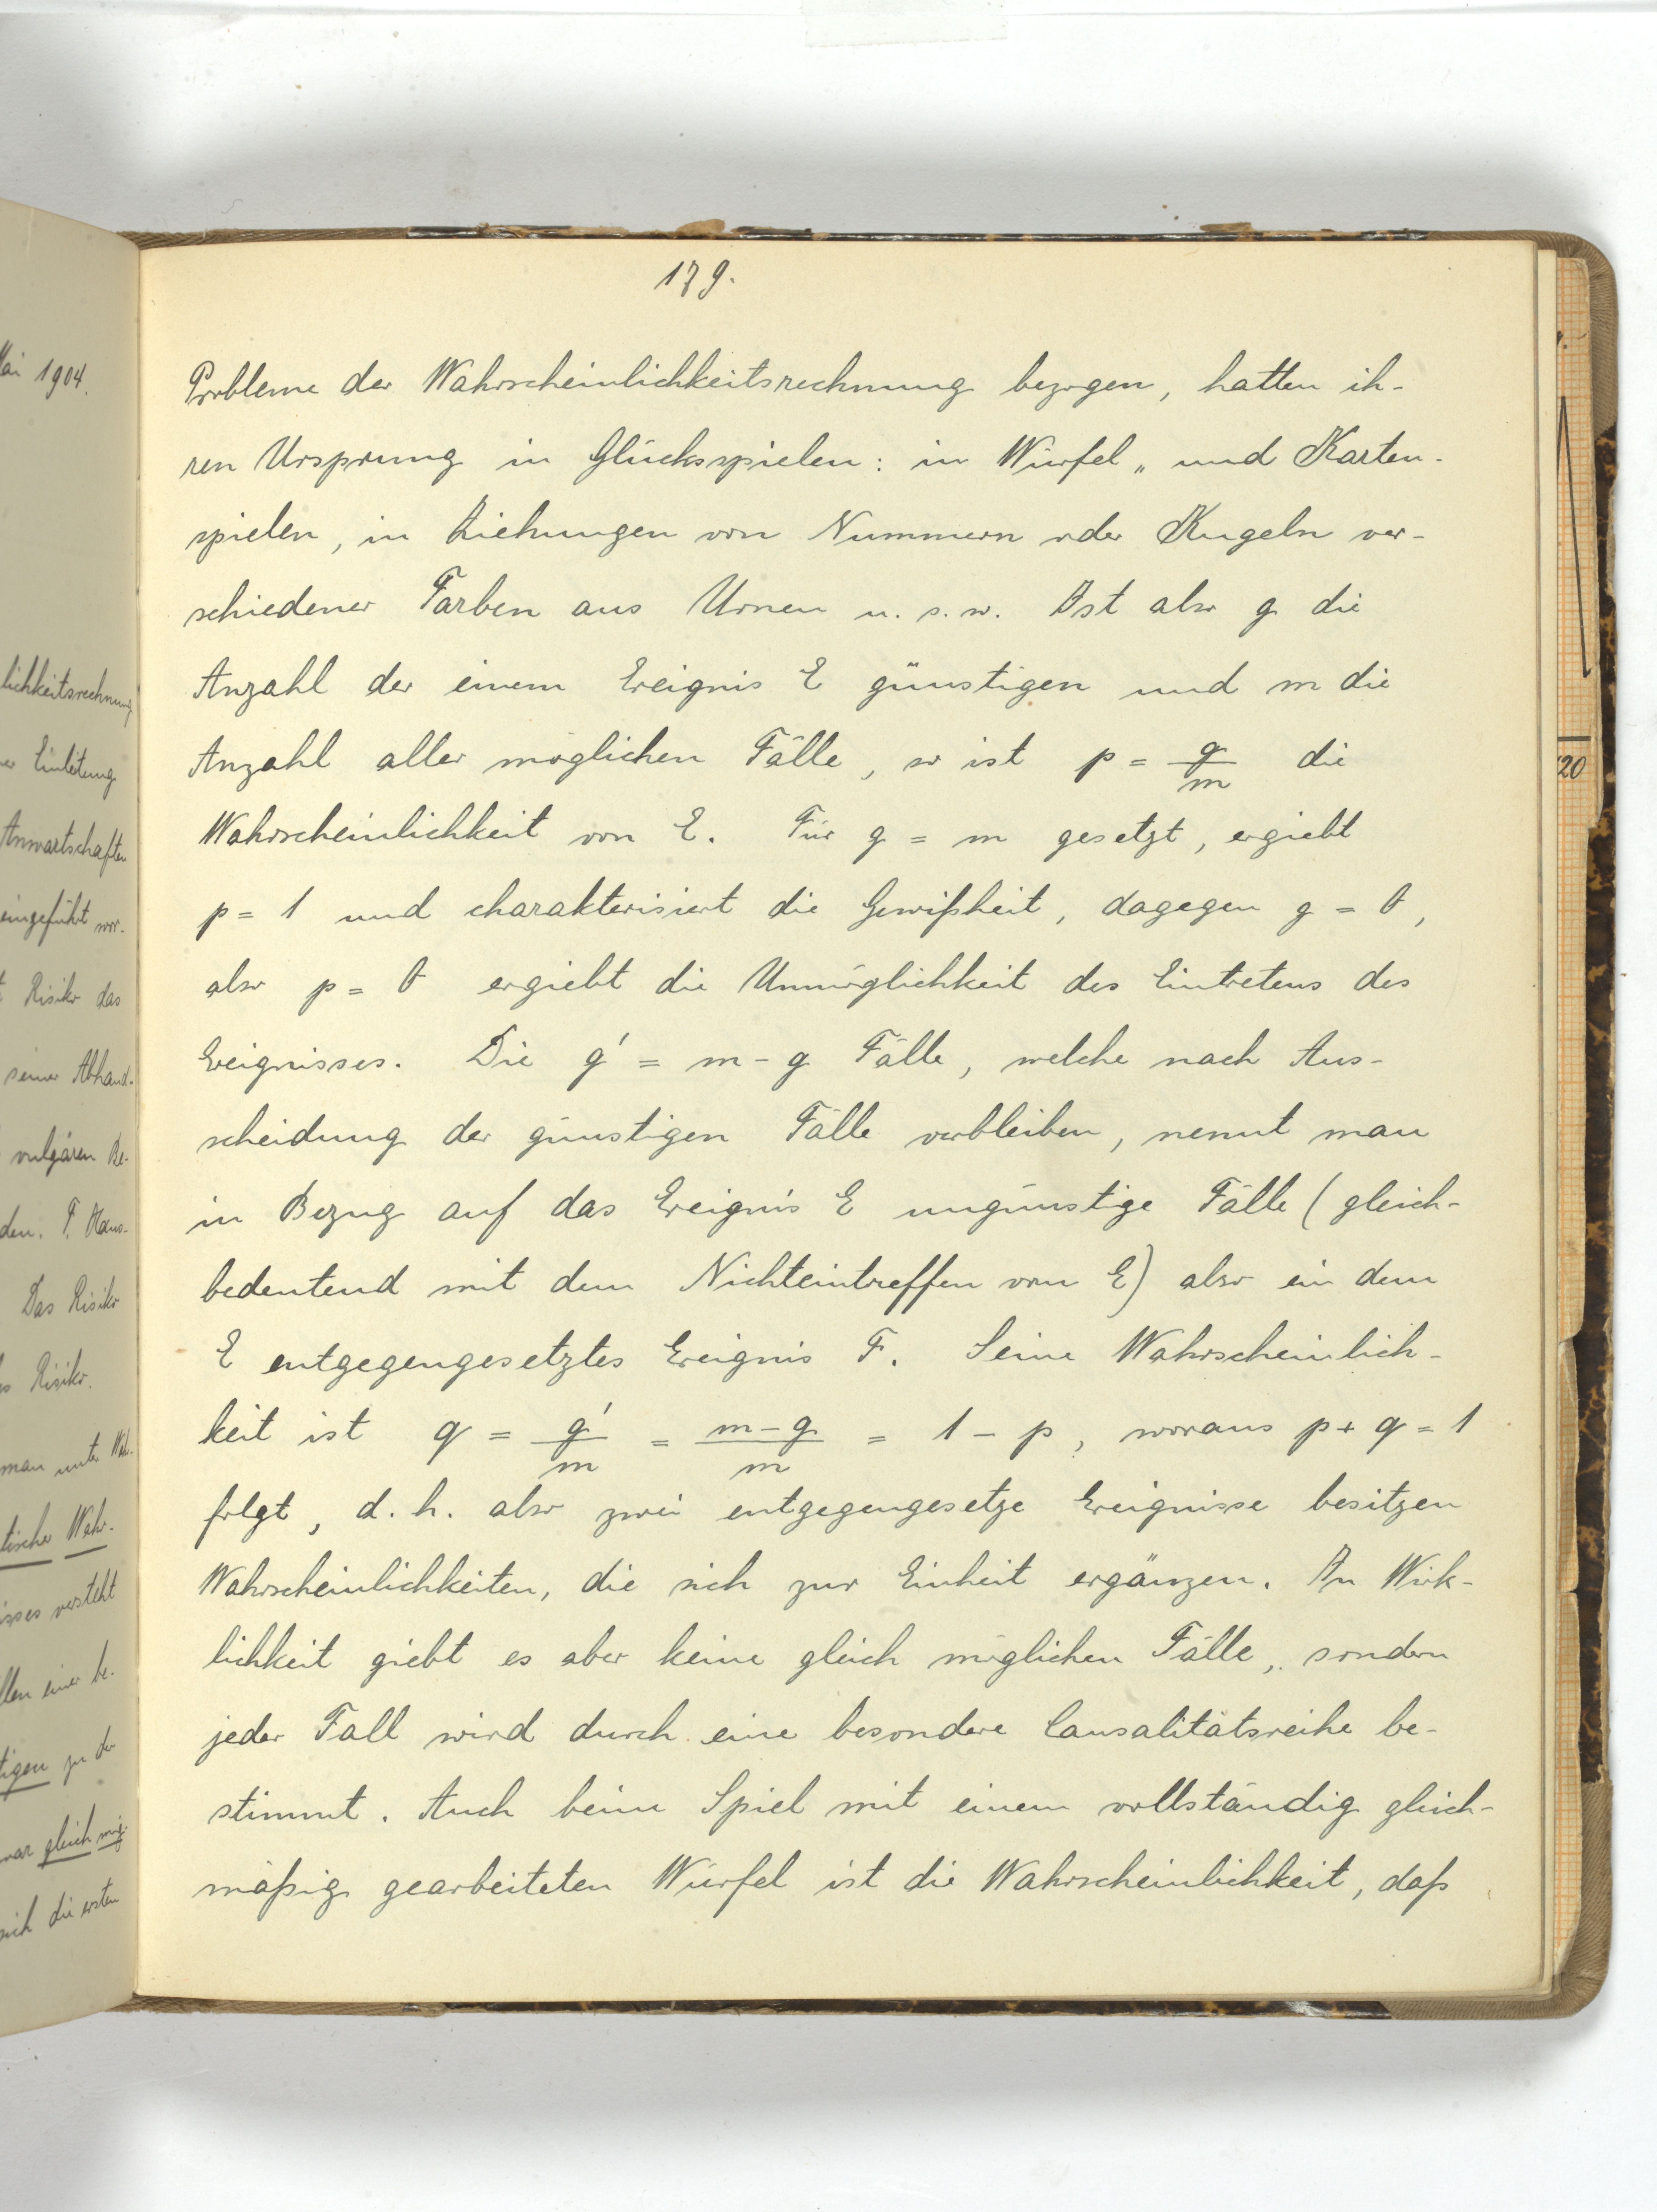 179.
Probleme der Wahrscheinlichkeitsrechnung bezogen, hatten ih-
ren Ursprung in Glücksspielen: in Würfel „ und Karten-
spielen, in Ziehungen von Nummern oder Kugeln ver-
schiedener Farben aus Urnen u. s. w. Ist also g die
Anzahl der einem Ereignis E günstigen und m die
Anzahl aller möglichen Fälle, so ist p = g/m die
Wahrscheinlichkeit von E. Für g = m gesetzt, ergiebt
p = 1 und charakterisiert die Gewißheit, dagegen g = 0,
also p = 0 ergiebt die Unmöglichkeit des Eintretens des
Ereignisses. Die g' = m - g Fälle, welche nach Aus-
scheidung der günstigen Fälle verbleiben, nennt man
in Bezug auf das Ereignis E ungünstige Fälle (gleich-
bedeutend mit dem Nichteintreffen von E) also ein dem
E entgegengesetztes Ereignis F. Seine Wahrscheinlich-
keit ist q = g'/m = m-g/m = 1 - p, woraus p + q = 1
folgt, d. h. also zwei entgegengesetze Ereignisse besitzen
Wahrscheinlichkeiten, die sich zur Einheit ergänzen. In Wirk-
lichkeit giebt es aber keine gleich möglichen Fälle, sondern
jeder Fall wird durch eine besondere Causalitätsreihe be-
stimmt. Auch beim Spiel mit einem vollständig gleich-
mäßig gearbeiteten Würfel ist die Wahrscheinlichkeit, daß
Mai 1904.
lichkeitsrechnung
Einleitung
Anwartschaften
eingeführt wor-
Risiko das
seiner Abhand-
vulgären Be-
den. F. Haus-
Das Risiko
Risiko.
man unter Wah-
tische Wahr-
isses versteht
llen einer be-
tigen zu der
war gleich mög-
sich die ersten
20